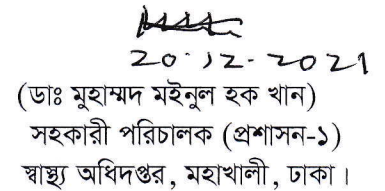 20.12.2021
(ডাঃ মুহাম্মদ মইনুল হক খান)
সহকারী পরিচালক (প্রশাসন-১)
স্বাস্থ্য অধিদপ্তর, মহাখালী, ঢাকা।